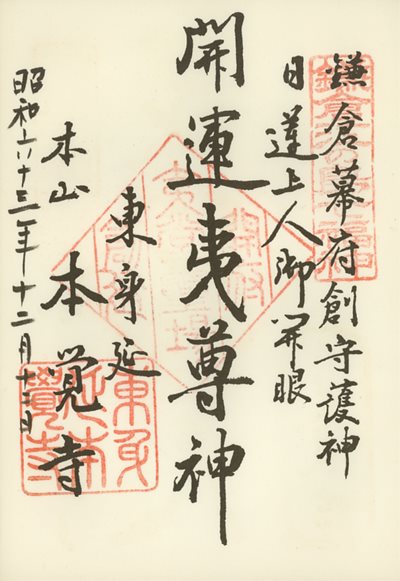 鎌倉幕府創守護神
日蓮上人御開眼
開運夷尊神
東身延
本山 本覚寺
昭和六十三年十二月十二日